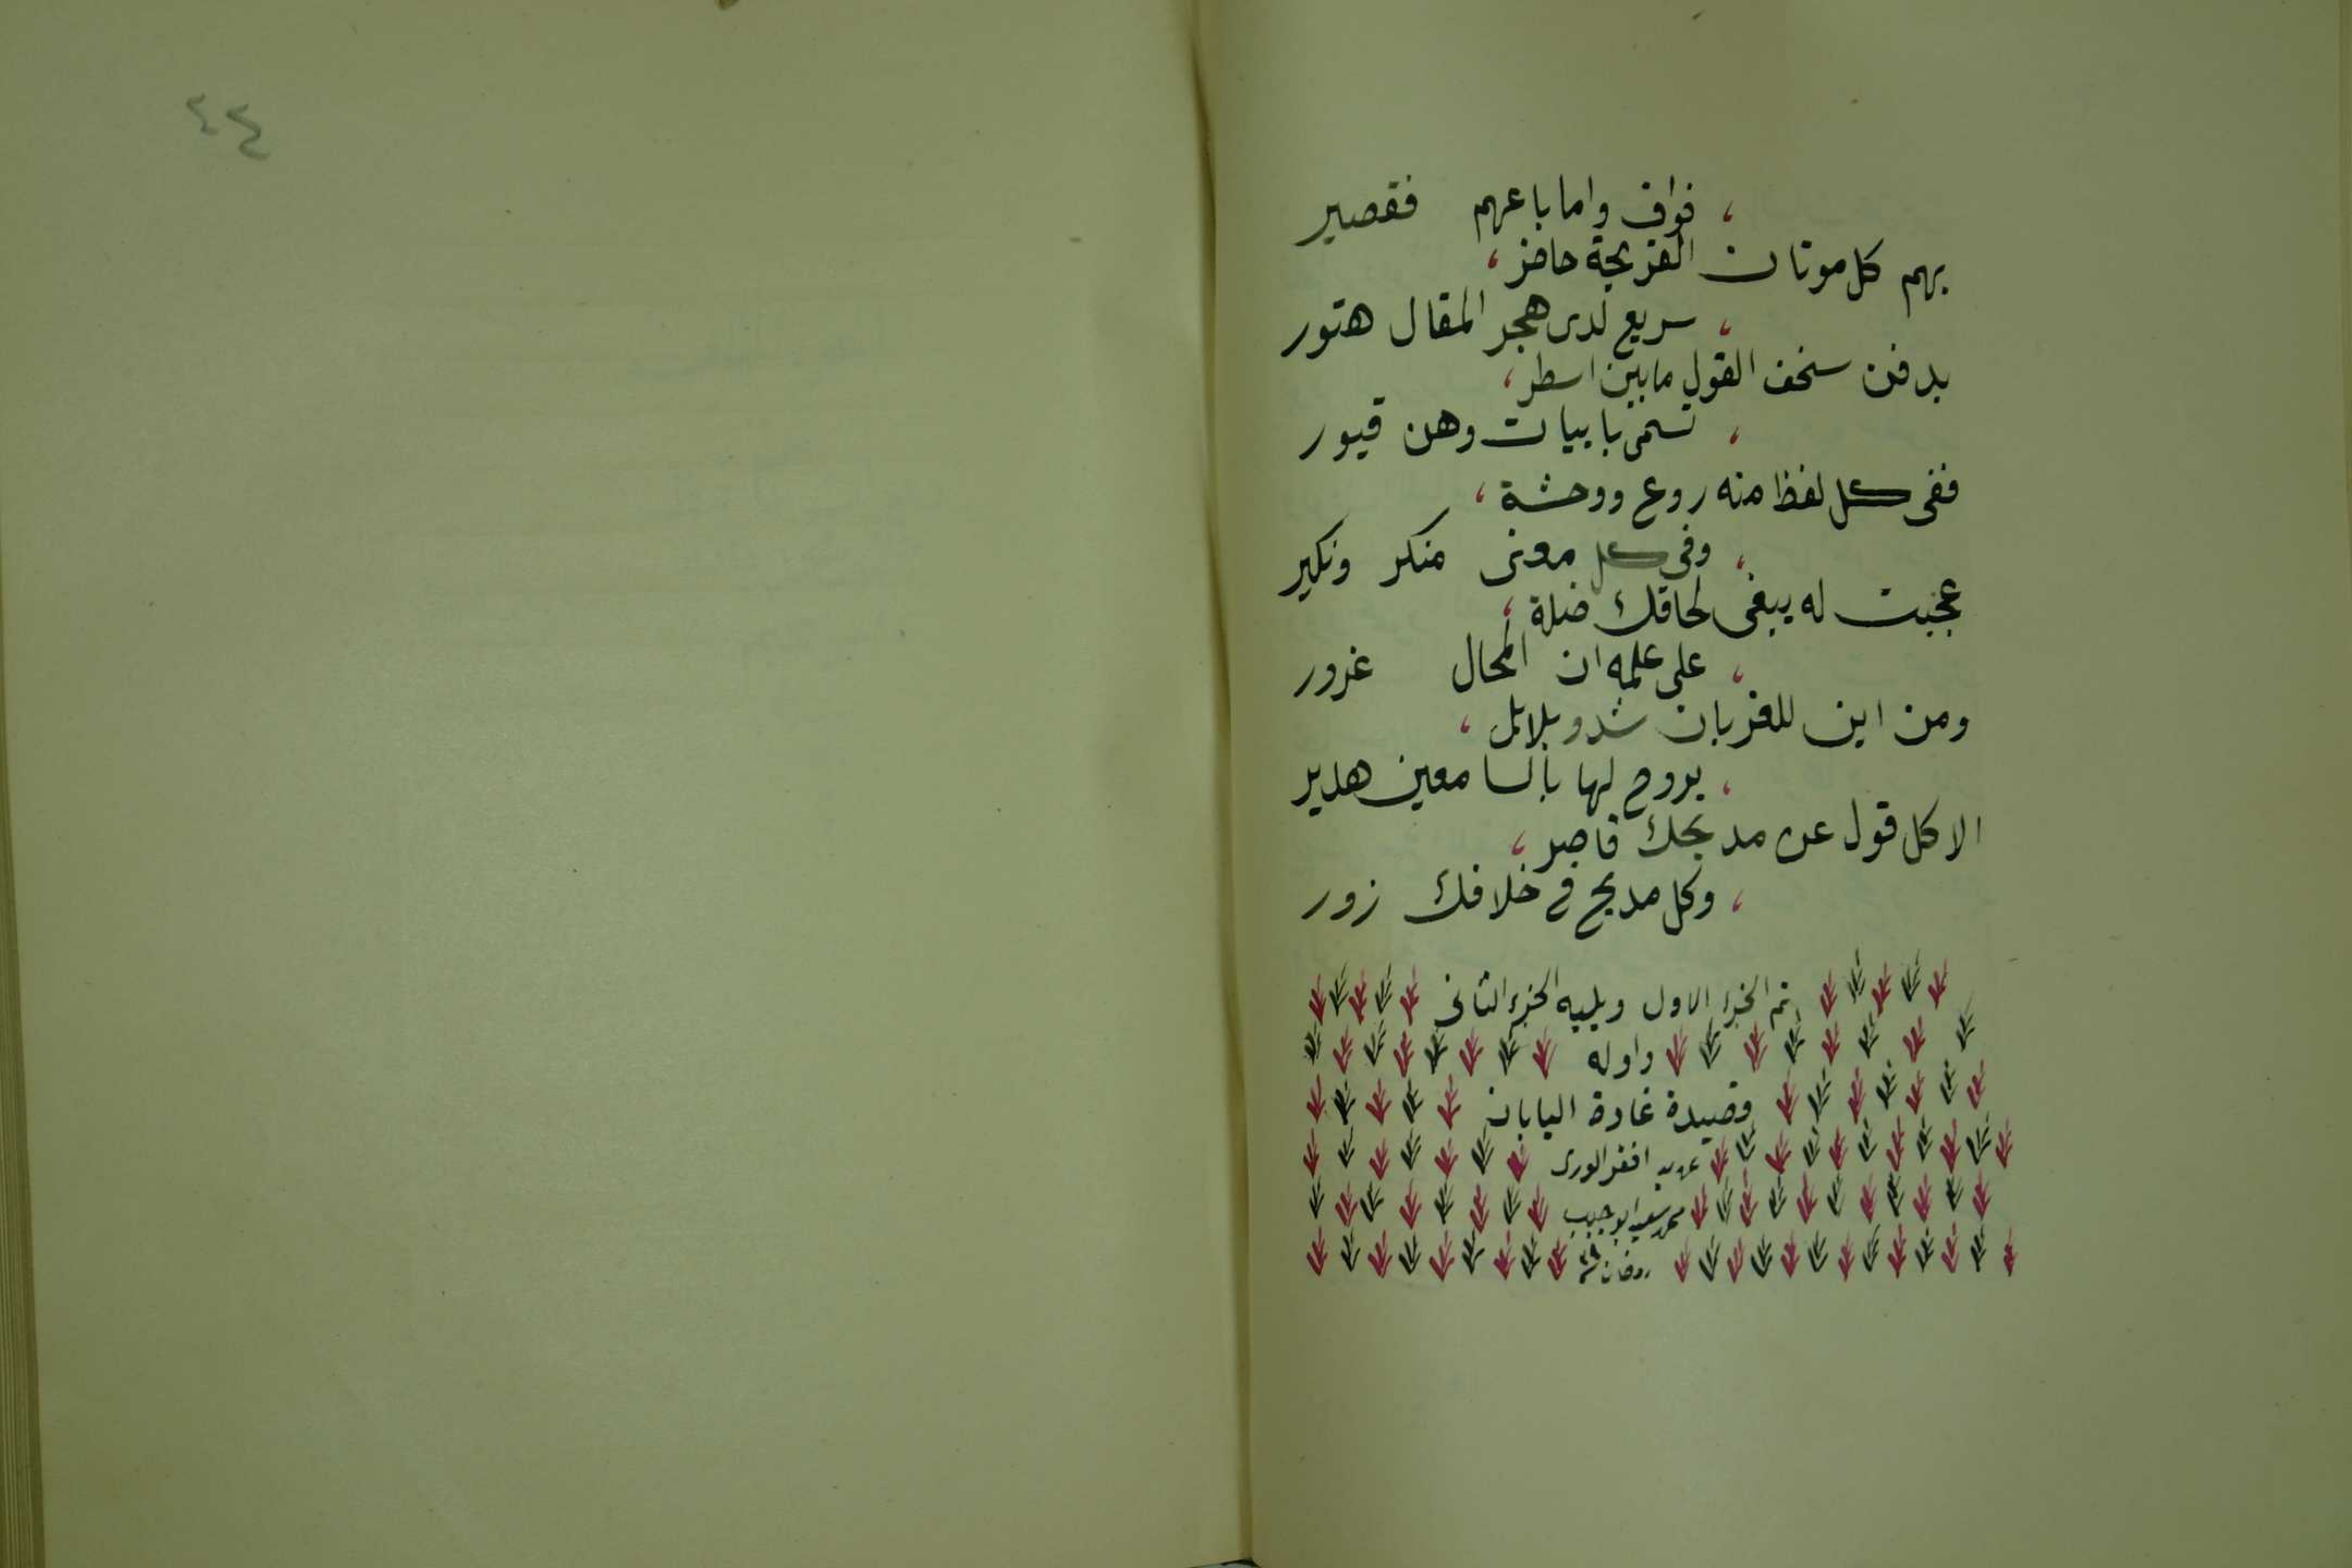 ، فواف واما باعهم فقصير
بهم كل موتان القريحة حافز،
، سريع لدى هجر المقال هتور
يدفن سخف القول مابين اسطر،
، تسمى بابيات وهن قبور
ففي كل لفظ منه روع ووحشة،
، وفي كل معنى منكر ونكير
عجبت له يبغي لحاقك ضلة،
، على علمه ان المحال غرور
ومن اين للغربان شدو بلابل،
، يروح لها بالسامعين هدير
الا كل قول عن مديحك قاصر،
، وكل مديح في خلافك زور
تم الجزء الاول ويليه الجزء الثاني
واوله
قصيدة غادة اليابان
افقر الورى
محمد سعيد ابو حبيب
رمضان
٤٤